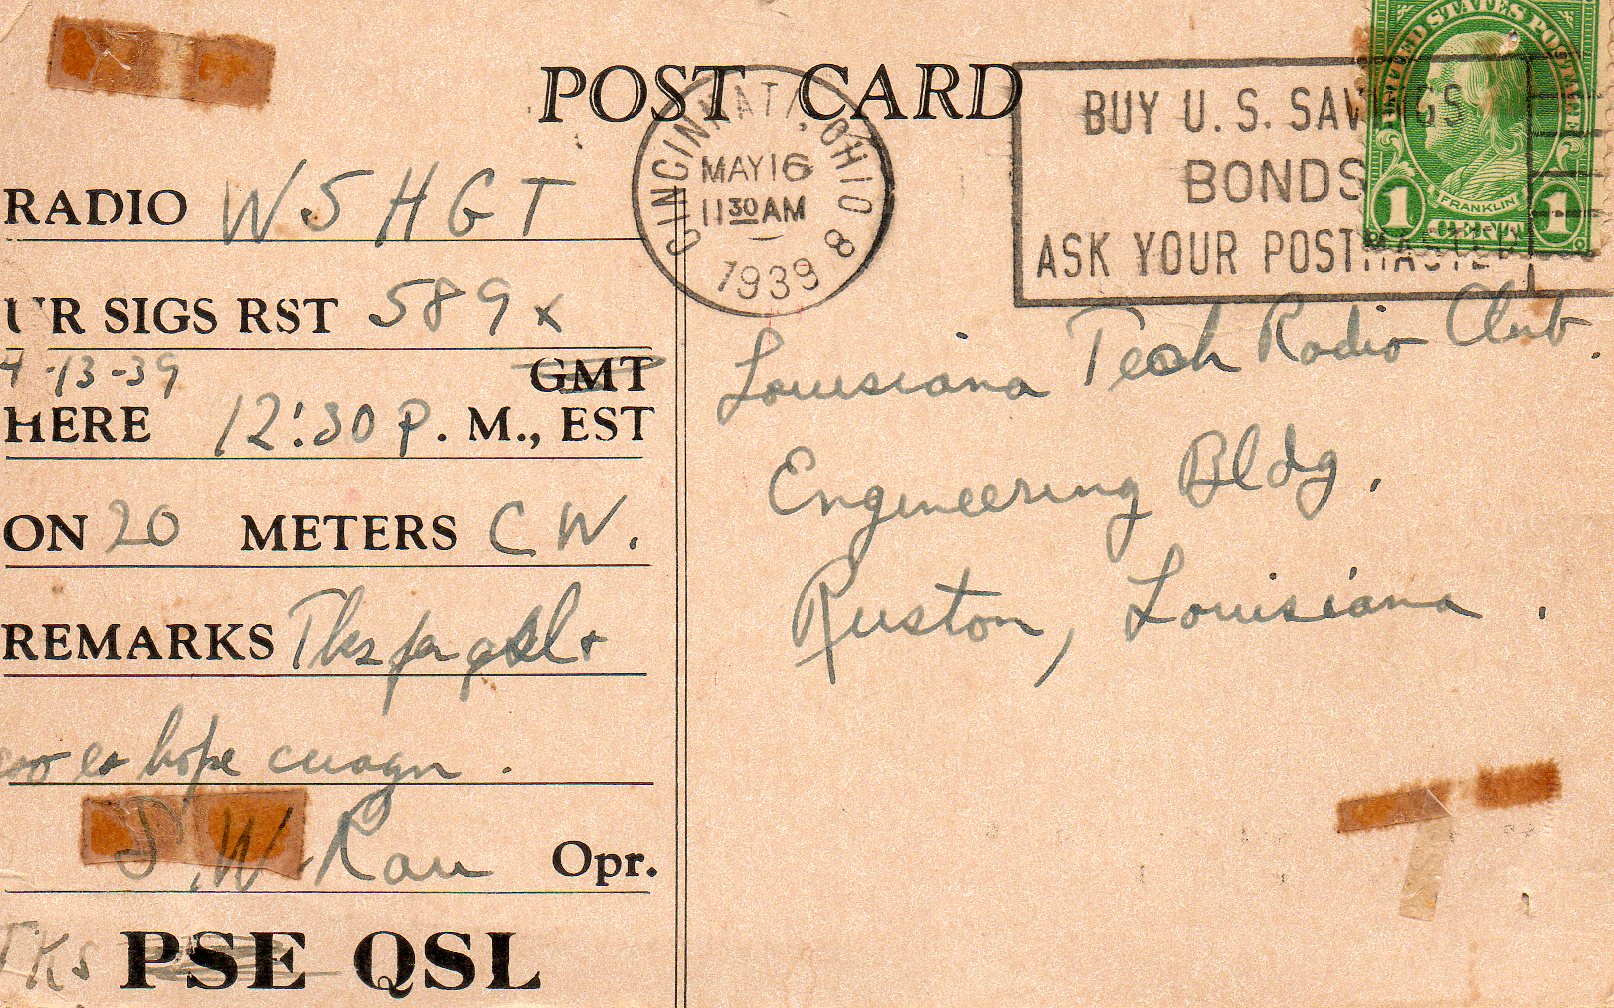 POST CARD
CINCINNATI, OHIO 8
MAY 16
11 30 AM
1939
BUY U.S. SAVINGS
BONDS
ASK YOUR POSTMASTER
UNITED STATES POSTAGE
FRANKLIN
1 1
RADIO W5HGT
UR SIGS RST 589x
4-13-39 GMT
HERE 12:30 P. M., EST
ON 20 METERS CW.
REMARKS Tks fer qsl &
hope cuagn.
W. Rau Opr.
TKS PSE QSL
Louisiana Tech Radio Club.
Engineering Bldg.
Ruston, Louisiana.